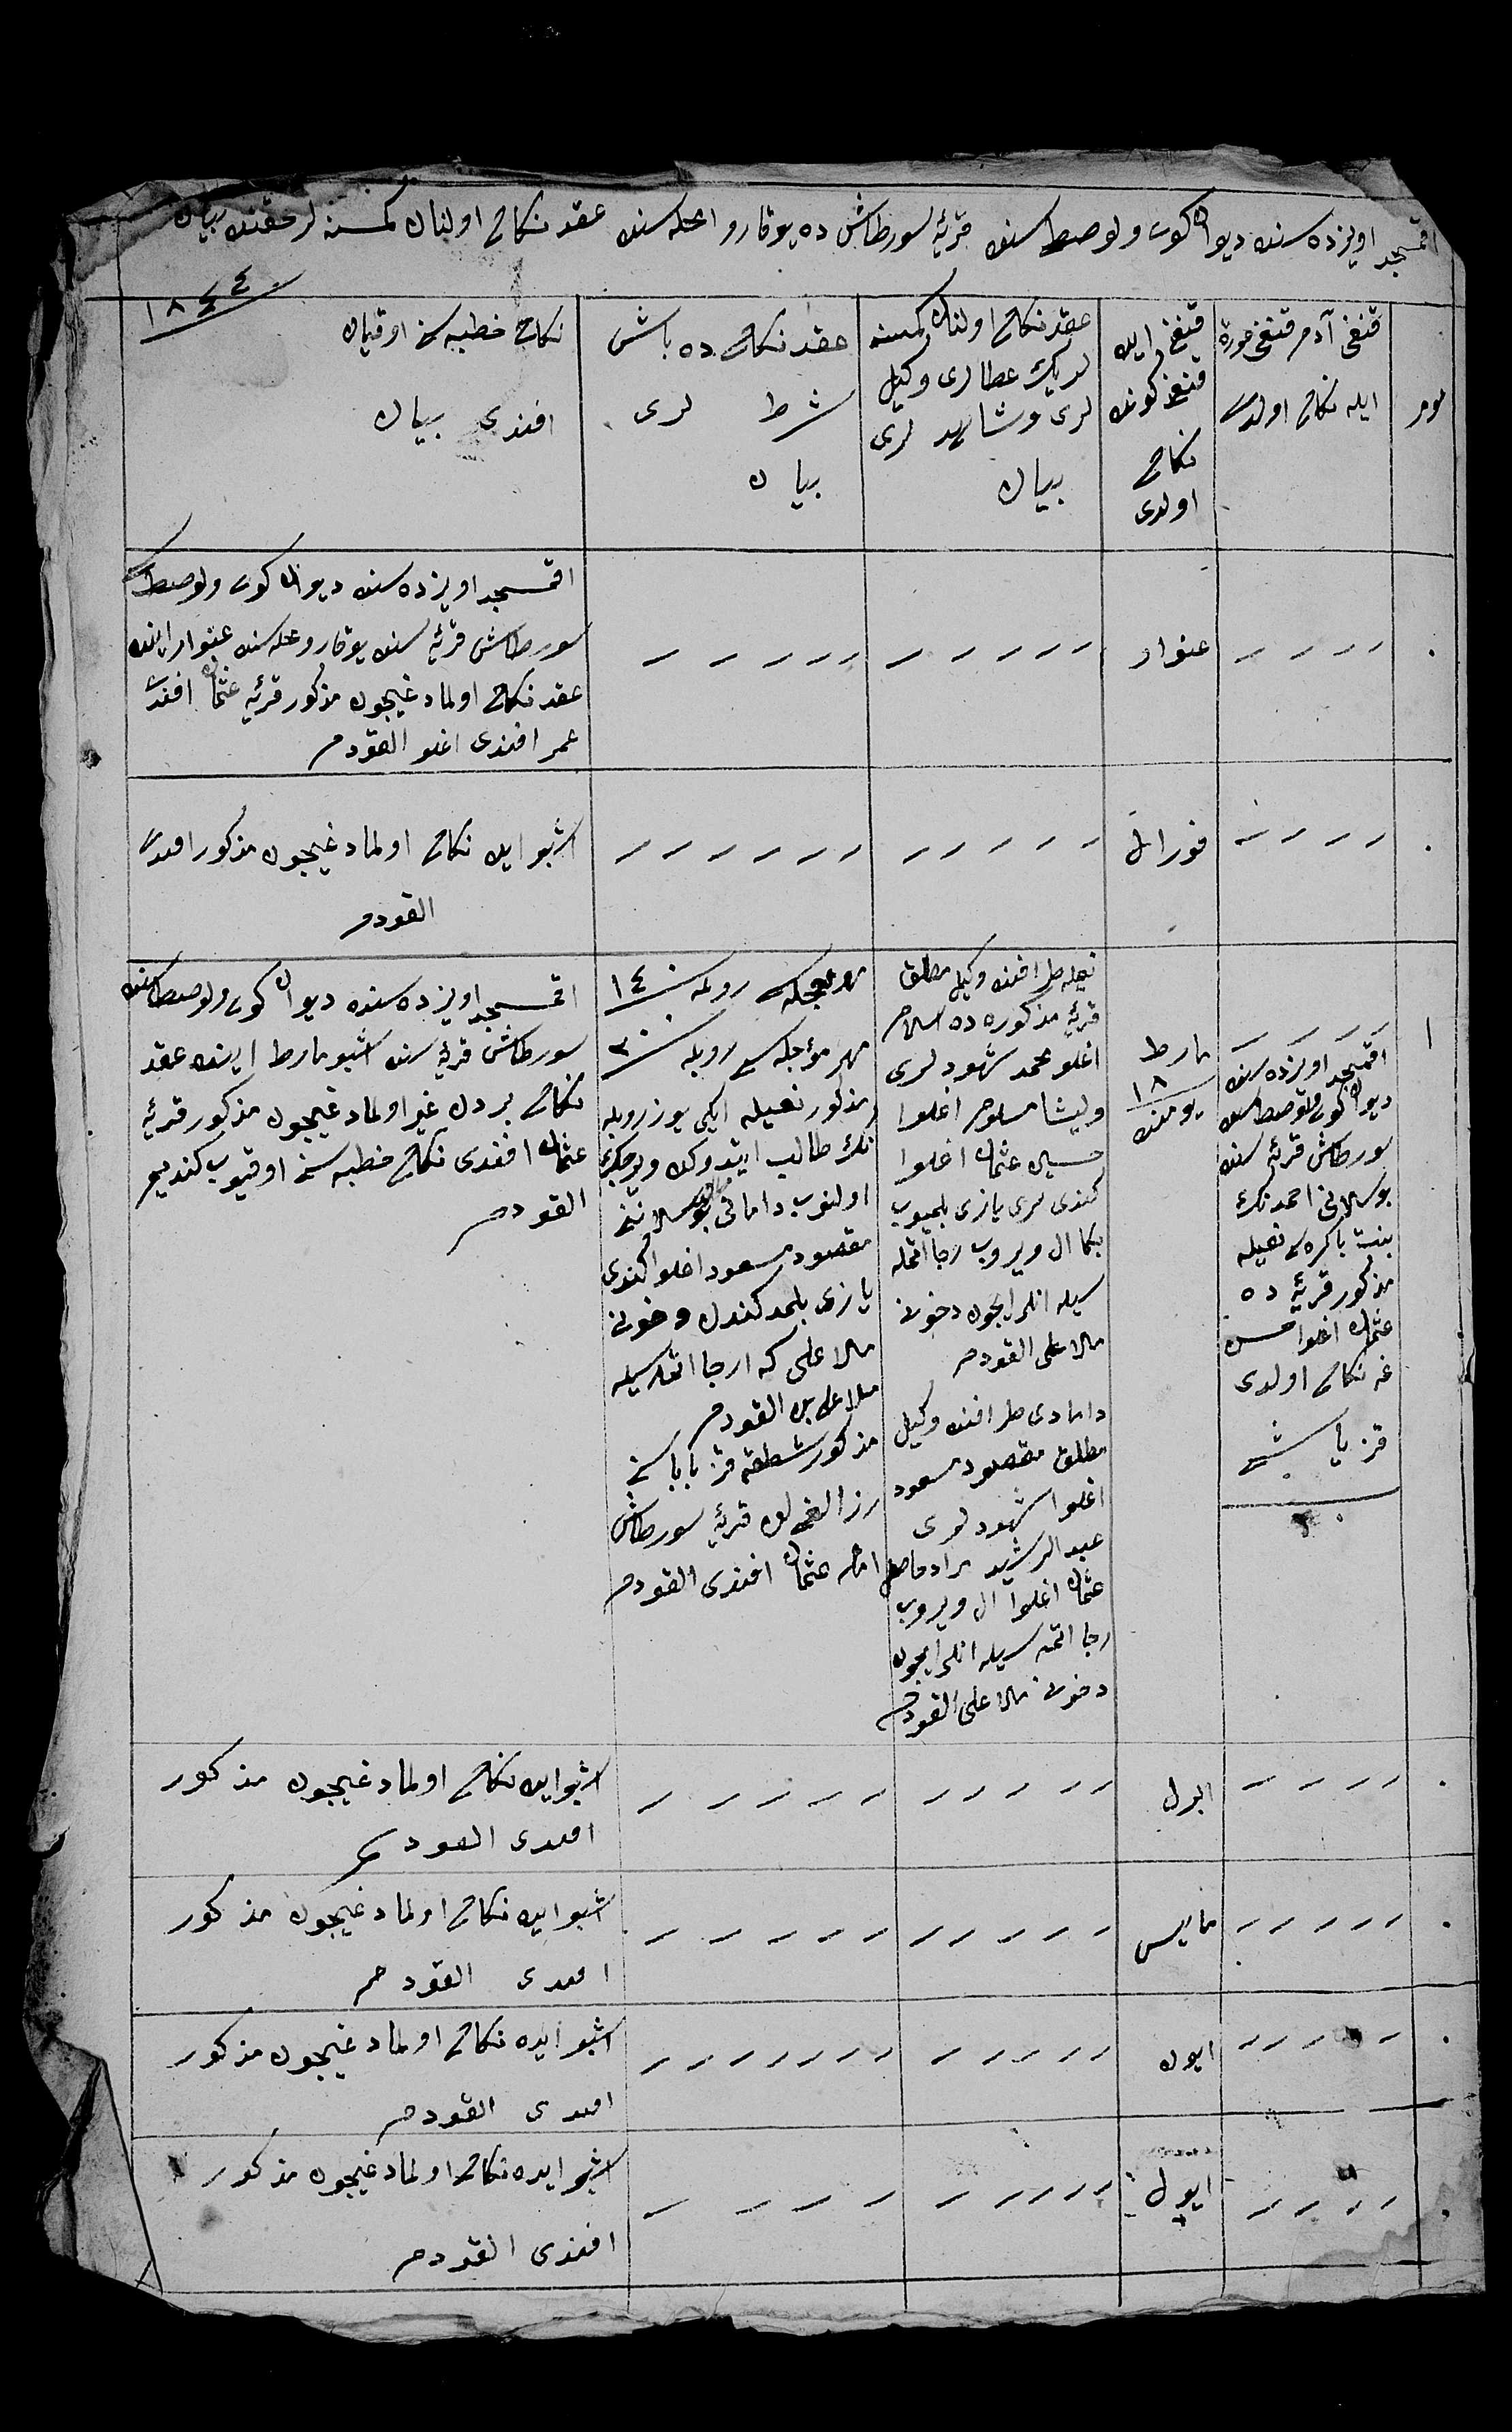 اقمسجد اویزده سنده دیوان کوی ولوصط سنده قریۀ سورطاش ده یوقارو محله سنده عقد نکاح اولنان کمسنه لر حقنده بیان
١٨٤٤
نومر
قنغی آدم قنغی عورة
ایله نکاح اولدی
قنغی ایده
قنغی کونده
نکاح
اولدی
عقد نکاح اولنان کمسنه
لریڭ عطالری وکیل
لری و شاهد لری
بیان
عقد نکاح ده باش
شرط لری
بیان
نکاح خطبه سنی اوقیان
افندی بیان
٠
عنوار
اقمسجد اویزده سنده دیوان کوی ولوصط
سورطاش قریۀ سنده یوقارو محله سنده عنوار اینده
عقد نکاح اولمادغیچون مذکور قریۀ عثمان افندی
عمر افندی اغلو القودم
٠
فورال
اشبو ایده نکاح اولمادغیچون مذکور افندی
القودم
١
اقمسجد اویزده سنده
دیوان کوی ولوصط سنده
سورطاش قریۀ سنده
احمدنڭ
بنت باکره سی نعیله
مذکور قریۀ ده
عثمان اغلوا حسن
غه نکاح اولدی
قز یاشی
مارط
١٨
یومنده
نعیله طرافنده وکیل مطلق
قریۀ مذکوره ده اسلام
اغلو محمد شهود لری
اغلوا
حسین عثمان اغلوا
کندی لری یازی بلمیوب
بکا ال ویروب رجا اتمه
سیله انلر ایچون
ملا علی القودم
دامادی طرافنده وکیل
مطلق مقصود مسعود
اغلوا شهود لری
عبد الرشید مراد
عثمان اغلوا ال ویروب
رجا اتمه سیله انلر ایچون
ملا علی القودم
مهر معجله سی روبله ١٤٠
مهر مؤجله سی روبله ٣٠٠
مذکور نعیله ایکی یوز روبله
نڭ طالب
اولنوب دامانی
مقصود مسعود اغلو کندی
یازی بلمد کندن
ملا علی که ارجا اتمه سیله
ملا علی القودم
مذکور قز باباسی
قریۀ سورطاش
امام عثمان افندی القودم
اقمسجد اویزده سنده دیوان کوی ولوصط سنده
سورطاش قریۀ سنده اشبو مارط اینده عقد
نکاح بردن غیر اولمادغیچون مذکور قریۀ
عثمان افندی نکاح خطبه سنی اوقیوب کندیم
القودم
٠
ابرل
اشبو ایده نکاح اولمادغیچون مذکور
افندی القودم
٠
مایس
اشبو ایده نکاح اولمادغیچون مذکور
افندی القودم
٠
ایون
اشبو ایده نکاح اولمادغیچون مذکور
افندی القودم
٠
ایول
اشبو ایده نکاح اولمادغیچون مذکور
افندی القودم